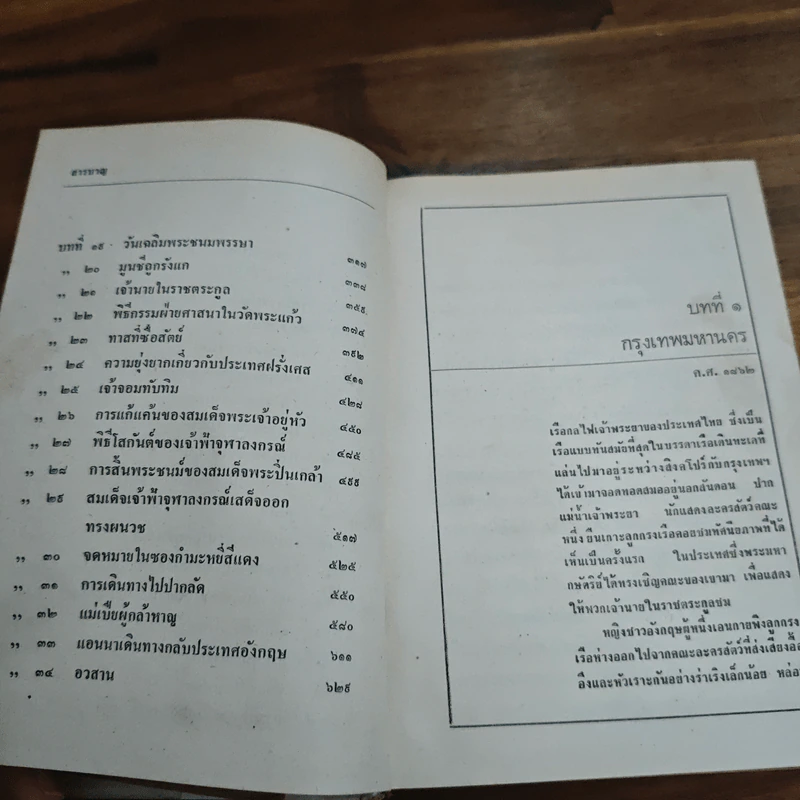 สารบาญ
บทที่ ๑๙ วันเฉลิมพระชนมพรรษา ๓๑๗
,, ๒๐ มูนชีถูกรังแก ๓๓๘
,, ๒๑ เจ้านายในราชตระกูล ๓๕๙
,, ๒๒ พิธีกรรมฝ่ายศาสนาในวัดพระแก้ว ๓๗๔
,, ๒๓ ทาสที่ซื่อสัตย์ ๓๙๒
,, ๒๔ ความยุ่งยากเกี่ยวกับประเทศฝรั่งเศส ๔๑๑
,, ๒๕ เจ้าจอมทับทิม ๔๒๘
,, ๒๖ การแก้แค้นของสมเด็จพระเจ้าอยู่หัว ๔๕๐
,, ๒๗ พิธีโสกันต์ของเจ้าฟ้าจุฬาลงกรณ์ ๔๘๕
,, ๒๘ การสิ้นพระชนม์ของสมเด็จพระปิ่นเกล้า ๔๙๙
,, ๒๙ สมเด็จเจ้าฟ้าจุฬาลงกรณ์เสด็จออก
ทรงผนวช ๕๑๗
,, ๓๐ จดหมายในซองกำมะหยี่สีแดง ๕๒๕
,, ๓๑ การเดินทางไปปากลัด ๕๕๐
,, ๓๒ แม่เบี้ยผู้กล้าหาญ ๕๘๐
,, ๓๓ แอนนาเดินทางกลับประเทศอังกฤษ ๖๑๑
,, ๓๔ อวสาน ๖๒๙
บทที่ ๑
กรุงเทพมหานคร
ค.ศ. ๑๘๖๒
เรือกลไฟเจ้าพระยาของประเทศไทย ซึ่งเป็น
เรือแบบทันสมัยที่สุดในบรรดาเรือเดินทะเลที่
แล่นไปมาอยู่ระหว่างสิงคโปร์กับกรุงเทพฯ
ได้เข้ามาจอดทอดสมออยู่นอกสันดอน ปาก
แม่น้ำเจ้าพระยา นักแสดงละครสัตว์คณะ
หนึ่ง ยืนเกาะลูกกรงเรือคอยชมทัศนียภาพที่ได้
เห็นเป็นครั้งแรก ในประเทศซึ่งพระมหา
กษัตริย์ได้ทรงเชิญคณะของเขามา เพื่อแสดง
ให้พวกเจ้านายในราชตระกูลชม
หญิงชาวอังกฤษผู้หนึ่งเอนกายพิงลูกกรง
เรือห่างออกไปจากคณะละครสัตว์ที่ส่งเสียงอื้อ
อึงและหัวเราะกันอย่างร่าเริงเล็กน้อย หล่อ